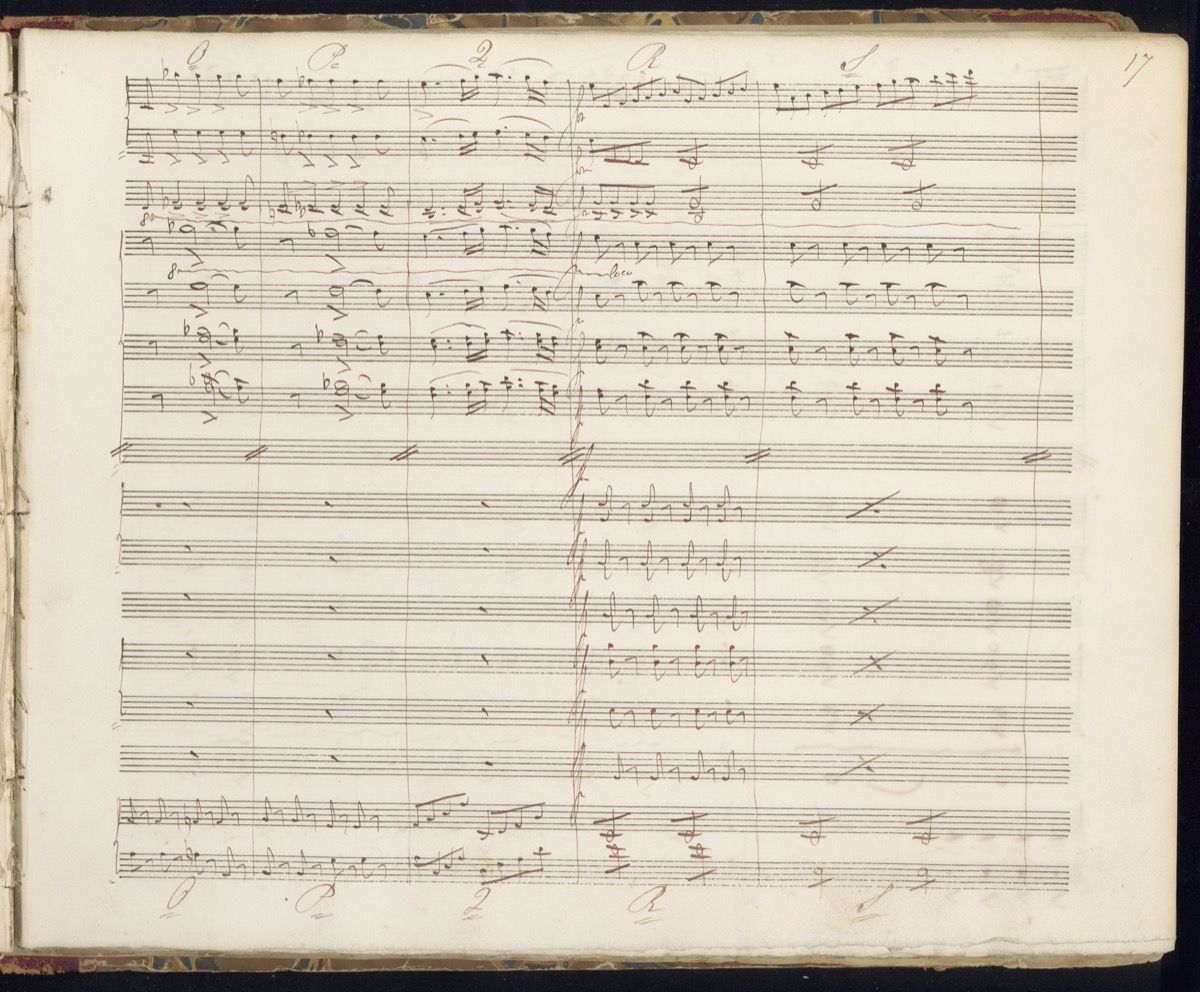 O P Q R S 17
8va
8va loco
O P Q R S